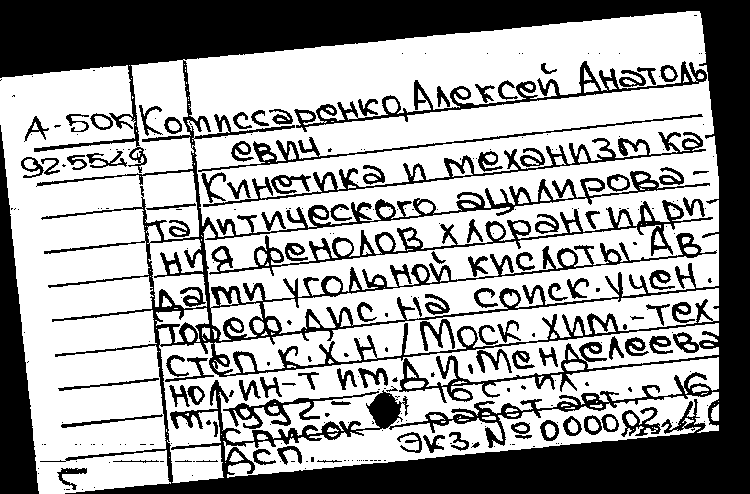 А-50К Комиссаренко, Алексей Анатоль
92-5549 евич.
Кинетика и механизм ка-
талитического ацилирова-
ния фенолов хлорангидри-
дами угольной кислоты: Ав-
тореф. дис. на соиск. учен.
степ. к.х.н. / Моск. хим.-тех-
нол. ин-т им. Д.И. Менделеева
М., 1992. - 16 с.: ил.
Список работ авт.: с 16
ДСП. Экз. № 000002